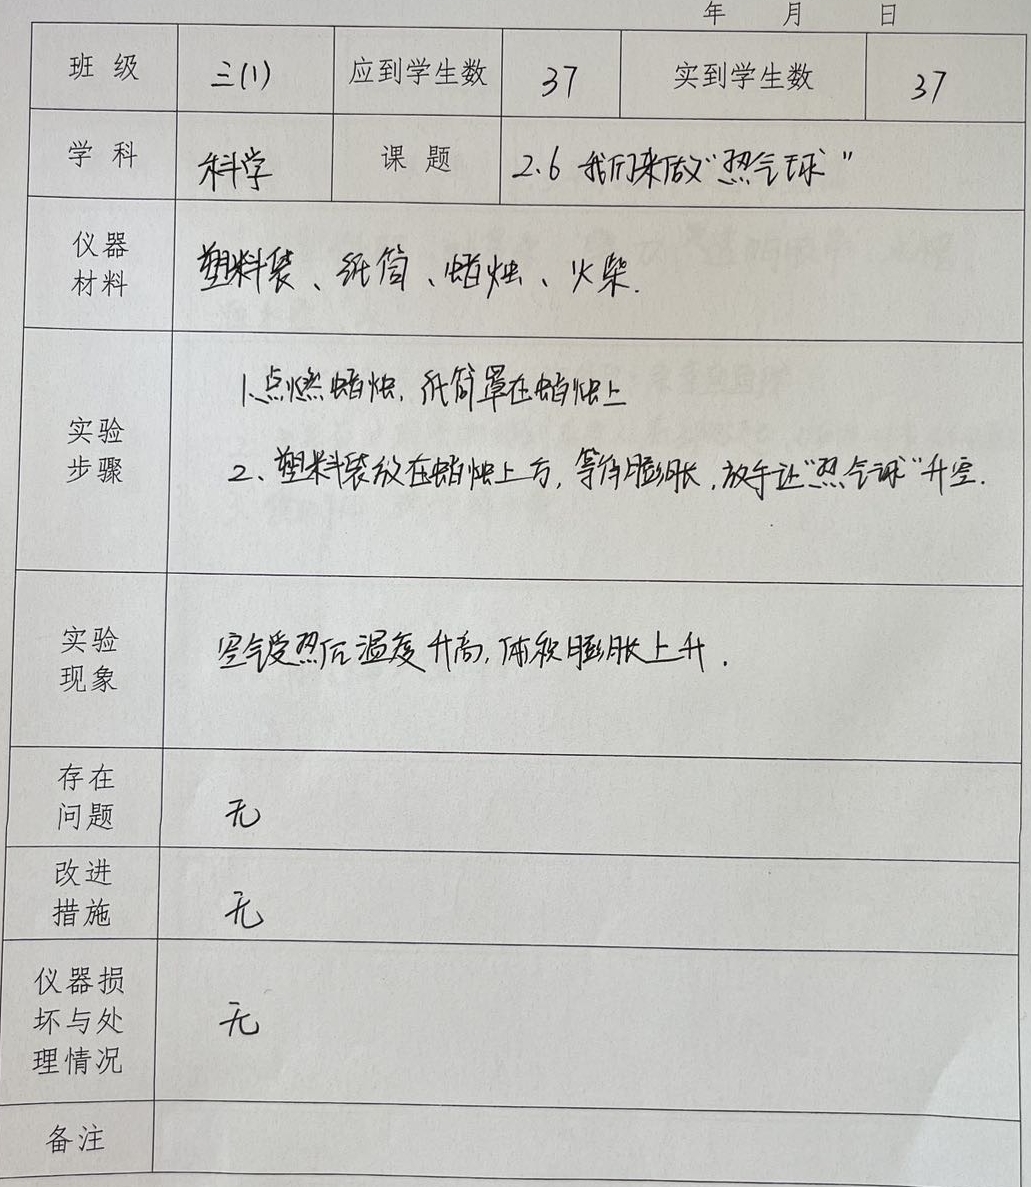 年 月 日
班级 三(1) 应到学生数 37 实到学生数 37
学科 科学 课题 2.6 我们来做“热气球”
仪器
材料
塑料装、纸筒、蜡烛、火柴.
实验
步骤
1.点燃蜡烛,纸筒罩在蜡烛上
2、塑料装放在蜡烛上方,等待膨胀,放手让“热气球”升空.
实验
现象
空气受热后温度升高,体积膨胀上升.
存在
问题
无
改进
措施
无
仪器损
坏与处
理情况
无
备注